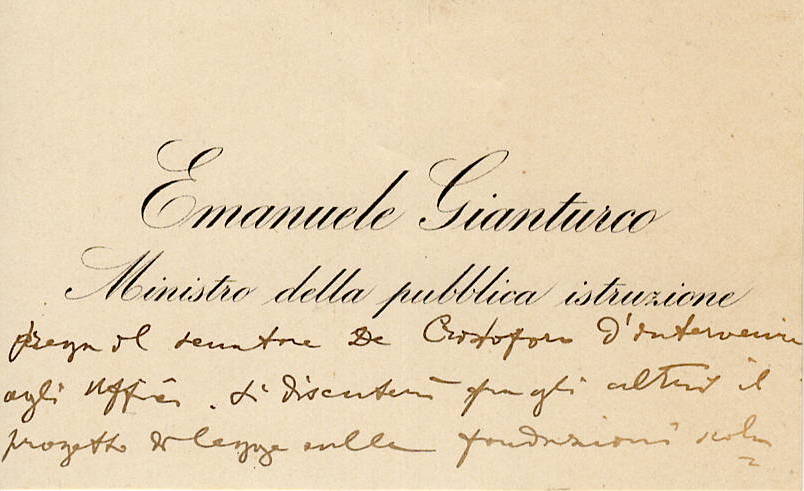 Emanuele Gianturco
Ministro della pubblica istruzione
prega il senatore De Cristoforo d'intervenire
agli Uffici. Si discuterà fra gli altri il
progetto di legge sulle fondazioni